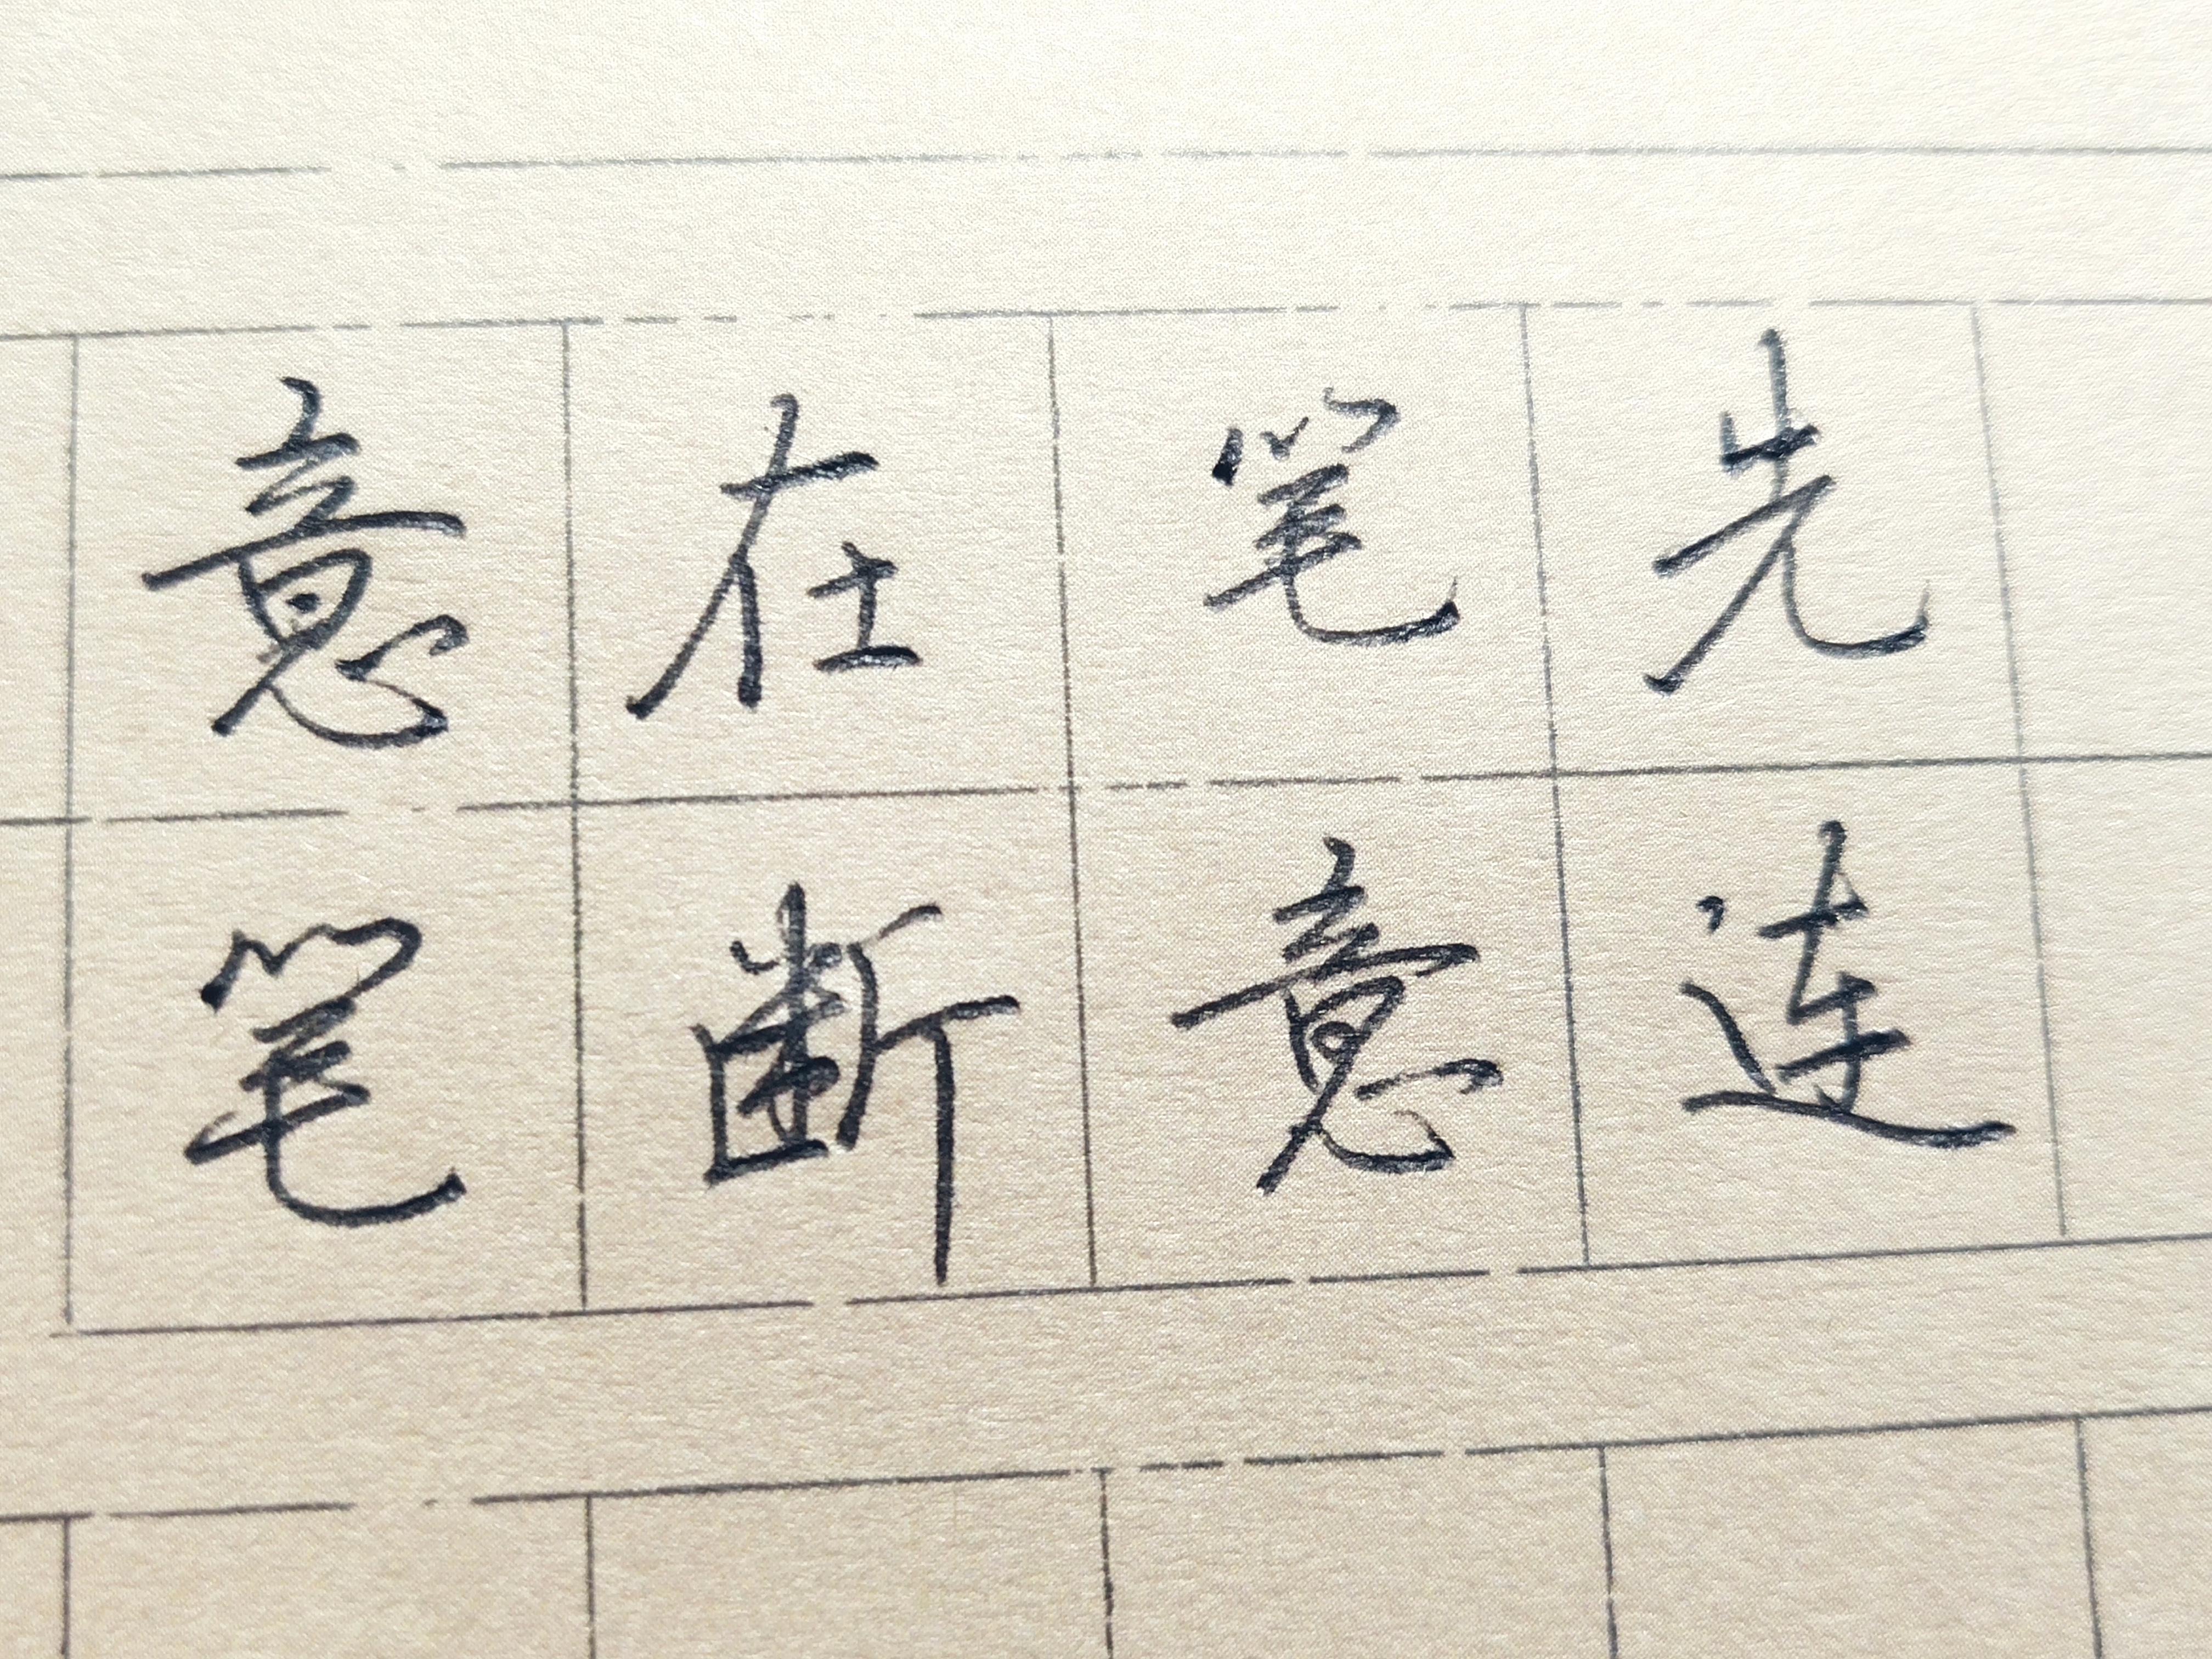 意在笔先
笔断意连